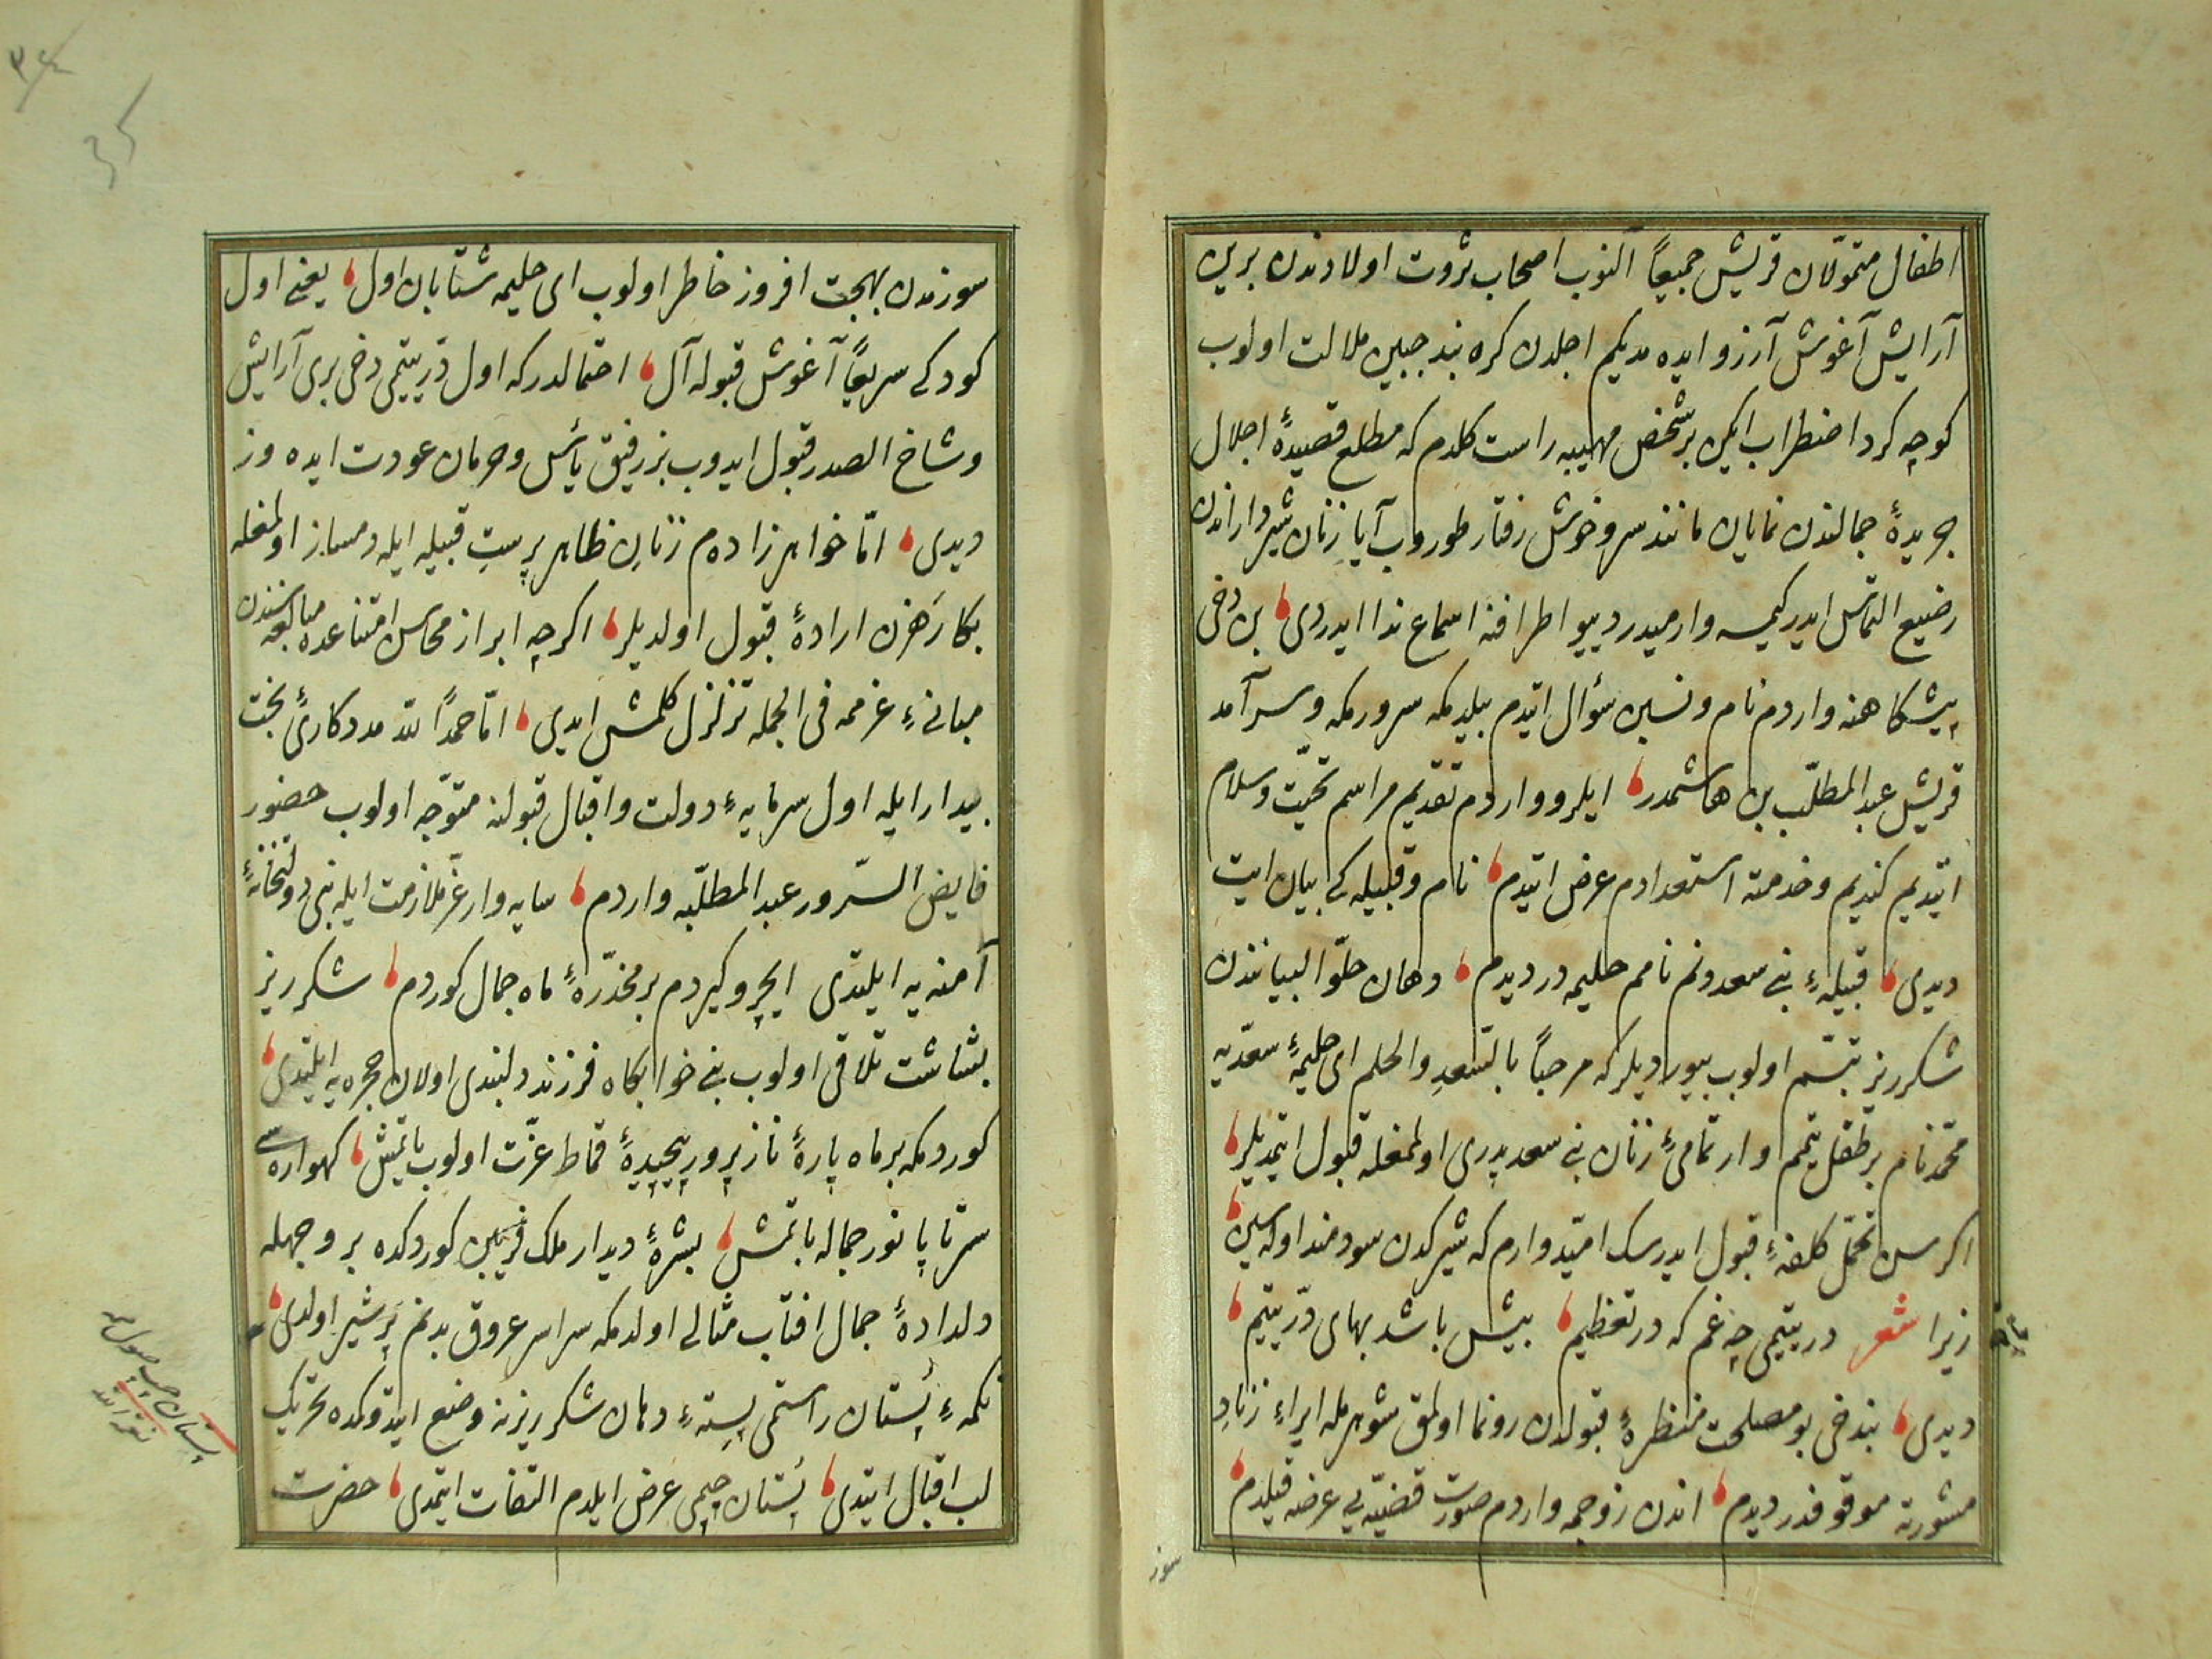 اطفال متموّلان قریش جمیعاً آلنوب اصحاب ثروت اولادندن برین
آرایش آغوش آرزو ایده مدیکم اجلدن کره بند جبین ملالت اولوب
کوچه کرد اضطراب ایکن بر شخص مهیبه راست کلدم که مطلع قصیدهٔ اجلال
جریدهٔ جمالندن نمایان مانند سرو خوش رفتار طوروب آیا زنان شیرداراندن
رضیع التماس ایدر کیمسه وارمیدر دییو اطرافنه اسماع ندا ایدردی بن دخی
پیشکاهنه واردم نام و نسبن سؤال ایتدم بیلدمکه سرور مکه و سرآمد
قریش عبد المطلّب بن هاشمدر ایلرو واردم تقدیم مراسم تحیّت و سلام
ایتدیم کندیم و خدمته استعدادم عرض ایتدم نام و قبیله کی بیان ایت
دیدی قبیلهٔ بنی سعدونم نامم حلیمه در دیدم دهان حلوّ البیانندن
شکرریز تبسّم اولوب بیوردیلر که مرحباً بالسّعد والحلم ای حلیمهٔ سعدیّه
محمّد نام بر طفل یتیمم وار تمامیٔ زنان بنی سعد پدری اولمغله قبول ایتمدیلر
اکر سن تحمّل کلفهٔ قبول ایدرسک امیّدوارم که شیرکدن سودمند اوله سین
زیرا شعر در یتیمی چه غم که در تعظیم بیش باشد بهای درّ یتیم
دیدی بندخی بو مصلحت منظرهٔ قبولدن رونما اولمق شوهرمله ایراء زناد
مشورته موقوفدر دیدم اندن زوجمه واردم صورت قضیّه یی عرضه قیلدم
سوز
سوزندن بهجت افروز خاطر اولوب ای حلیمه شتابان اول یعنی اول
کودکی سریعاً آغوش قبوله آل احتمالدرکه اول درّ یتیمی دخی بری آرایش
وشاح الصدر قبول ایدوب بز رفیق یأس و حرمان عودت ایده وز
دیدی امّا خواهرزاده م زنان ظاهر پرست قبیله ایله دمساز اولمغله
بکا رَهزن ارادهٔ قبول اولدیلر اکرچه ابراز محاسن امتناعده مبالغه سندن
مبانیٔ عزممه فی الجمله تزلزل کلمش ایدی امّا حمداً للّه مددکاریٔ بخت
بیدار ایله اول سرمایهٔ دولت و اقبال قبولنه متوّجه اولوب حضور
فایض السّرور عبد المطلّبه واردم سایه وار عزّ ملازمت ایله بنی دولتخانهٔ
آمنه یه ایلتدی ایچرو کیردم بر مخدّرهٔ ماه جمال کوردم شکرریز
بشاشت تلاقی اولوب بنی خوابکاه فرزند دلبندی اولان حجره یه ایلتدی
کوردمکه بر ماه پارهٔ نازپرور پیچیدهٔ قماط عزّت اولوب یاتمش کهواره سی
سرتاپا نور جماله باتمش بشرهٔ دیدار ملک فریبن کوردکده بر وجهله
دلدادهٔ جمال افتاب مثالی اولدمکه سراسر عروق بدنم پر شیر اولدی
تکمهٔ پستان راستمی پستهٔ دهان شکرریزنه وضع ایتدوکده تحریک
لب اقبال ایتدی پستان چپمی عرض ایلدم التفات ایتمدی حضرت